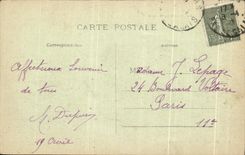 CARTE POSTALE
Correspondance
Affectueux Souvenir
de tous
M. Dupuy
19 Avril
Madame J. Lepage
24 Boulevard Voltaire
Paris
11e